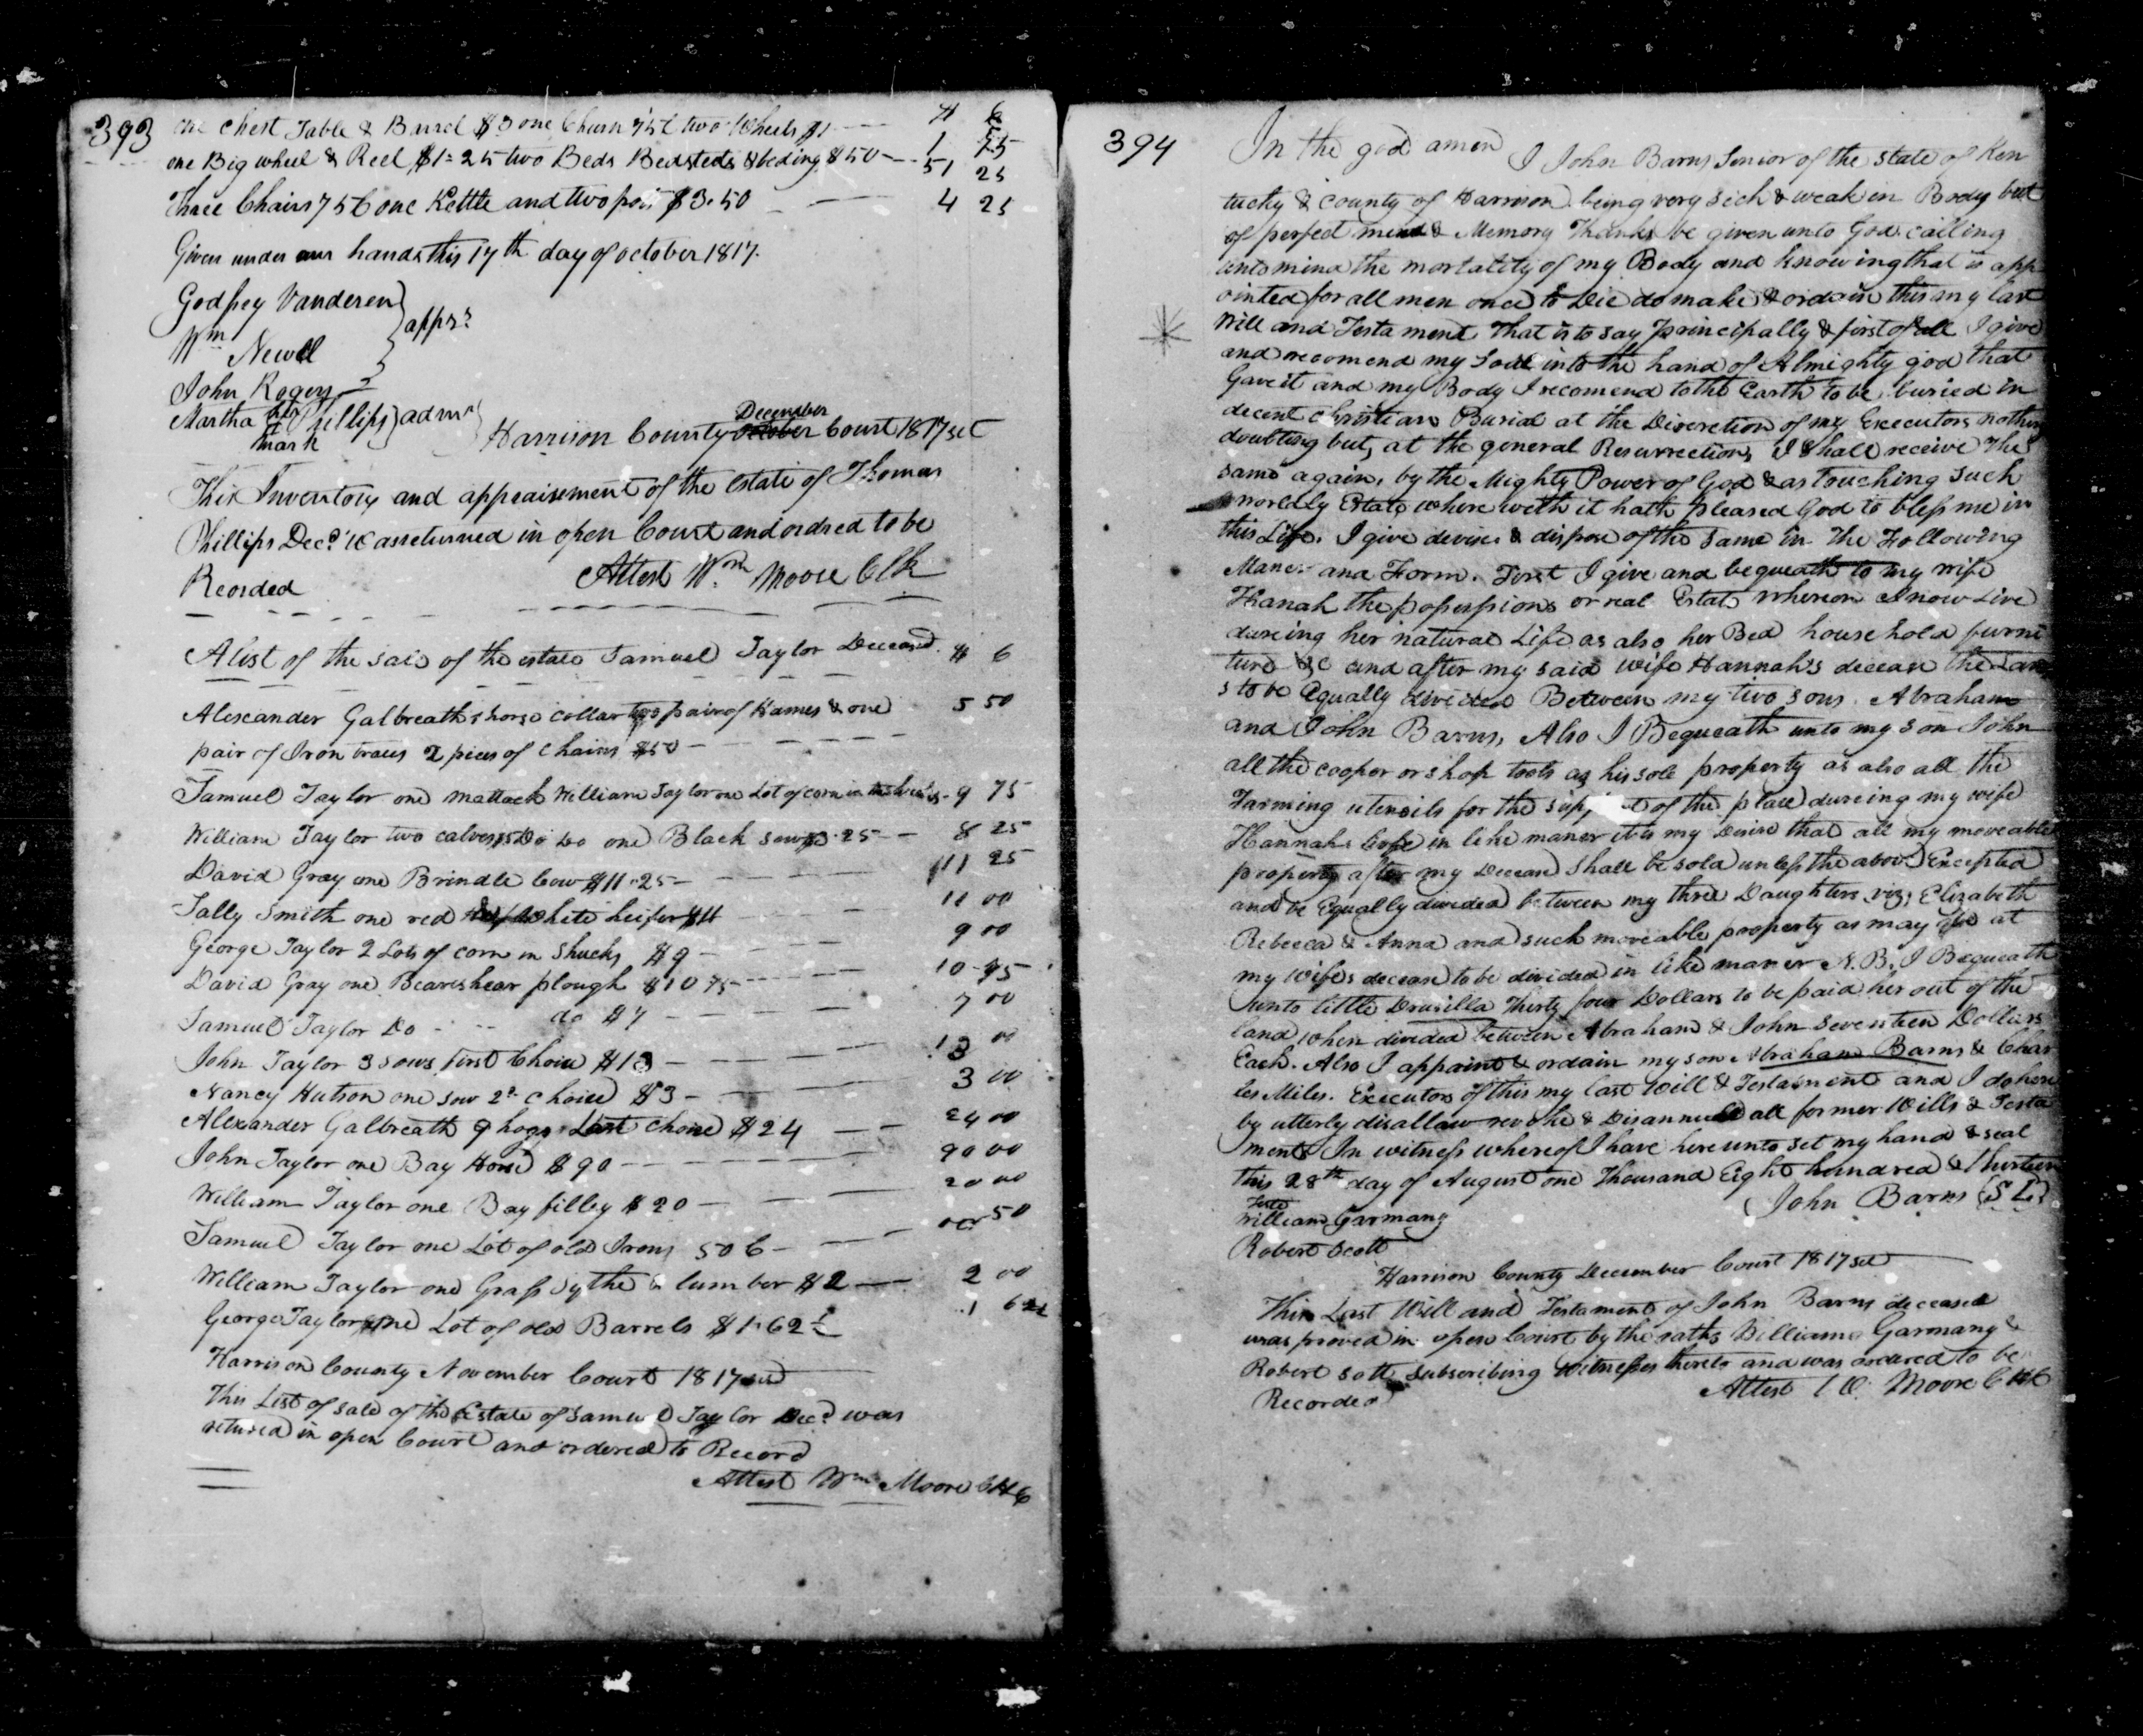 393
one Chest Table & Barrel $3 one Churn 75 C two Wheels $1
$ C
one Big wheel & Reel $1=25 two Beds Bedsteds & beding $50 51 25
Three Chairs 75 C one Kettle and two pots $3.50 4 25
Given under our hands this 17th day of october 1817.
Godfrey Vanderen
Wm Newell
apprs
John Rogers
Martha her mark Phillips admr
Harrison County October December Court 1817 sct
This Inventory and appraisement of the Estate of Thomas
Phillips Decd Was returned in open Court and ordred to be
Reorded Attest Wm Moore Clk
A list of the sale of the estate Samuel Taylor Deceasd. $ C
Alexander Galbreath 1 horse collar two pair of Hames & one 5 50
pair of Iron traces 2 pieces of chains $5 50
Samuel Taylor one mattack William Taylor one Lot of corn in 9 75
William Taylor two calves $5 Do Do one Black sow $3.25 8 25
David Gray one Brindle Cow $11.25 11 25
Sally Smith one red White heifer $11 11 00
George Taylor 2 Lots of corn in Shucks $9 9 00
David Gray one Beareshear plough $10 75 10 75
Samuel Taylor Do do $7 7 00
John Taylor 3 sows first Choice $13 13 00
Nancy Hutson one sow 2d choice $3 3 00
Alexander Galbreath 9 hogs Last choice $24 24 00
John Taylor one Bay Horse $90 90 00
William Taylor one Bay filley $20 20 00
Samuel Taylor one Lot of old Irons 50 C 00 50
William Taylor one Grass Sythe & lumber $2 2 00
George Taylor one Lot of old Barrels $1.62½ 1 62½
Harrison County November Court 1817 sct
This List of sale of the Estate of Samuel Taylor Decd was
retured in open Court and ordered to Record
Attest Wm Moore ClkC
394
In the god amen I John Barns Senior of the state of Ken
tucky & county of Harrison being very sick & weak in Body but
of perfect mind & Memory Thanks be given unto God calling
unto mind the mortality of my Body and knowing that is app
ointed for all men once to Die do make & ordain this my last
Will and Testament That is to say principally & first of all I give
and recomend my Soul into the hand of Almighty god that
Gave it and my Body I recomend to the Earth to be buried in
decent christian Burial at the Discretion of my Executors nothing
doubting but, at the general Resurrection, I shall receive The
same again, by the Mighty Power of God & as Touching such
worldly Estate where with it hath pleased God to bless me in
this Life. I give devise & dispose of the same in The Following
Maner and Form. First I give and bequeath to my wife
Hanah the possessions or real Estate whereon I now Live
dureing her natural Life as also her Bed house hold furni
ture &c and after my said wife Hannah's decease the Lan
s to be Equally divided Between my two sons. Abraham
and John Barns, Also I Bequeath unto my son John
all the cooper or shop tools as his sole property as also all the
Farming utensils for the of the place dureing my wife
Hannahs Life in like maner it is my Desire that all my moveable
property after my Decease shall be sold unless the above Excepted
and be Equally divided between my three Daughters viz; Elizabeth
Rebecca & Anna and such moveable property as may be at
my wifes decease to be divided in like maner N.B. I Bequeath
unto little Drusilla Thirty four Dollars to be paid her out of the
land when divided between Abraham & John Seventeen Dollars
Each. Also I appoint & ordain my son Abraham Barns & Char
les Miles. Executors of this my last Will & Testament and I do here
by utterly disallow revoke & Disannull all former Wills & Testa
ments In witness whereof I have here unto set my hand & seal
this 28th day of August one Thousand Eight hundred & Thirteen
Teste John Barns (S L)
William Garmany
Robert Scott
Harrison County December Court 1817 sct
This Last Will and Testament of John Barns deceased
was proved in open Court by the oaths William Garmany &
Robert Sott subscribing Witnesses thereto and was ordered to be
Recorded Attest W. Moore ClkC